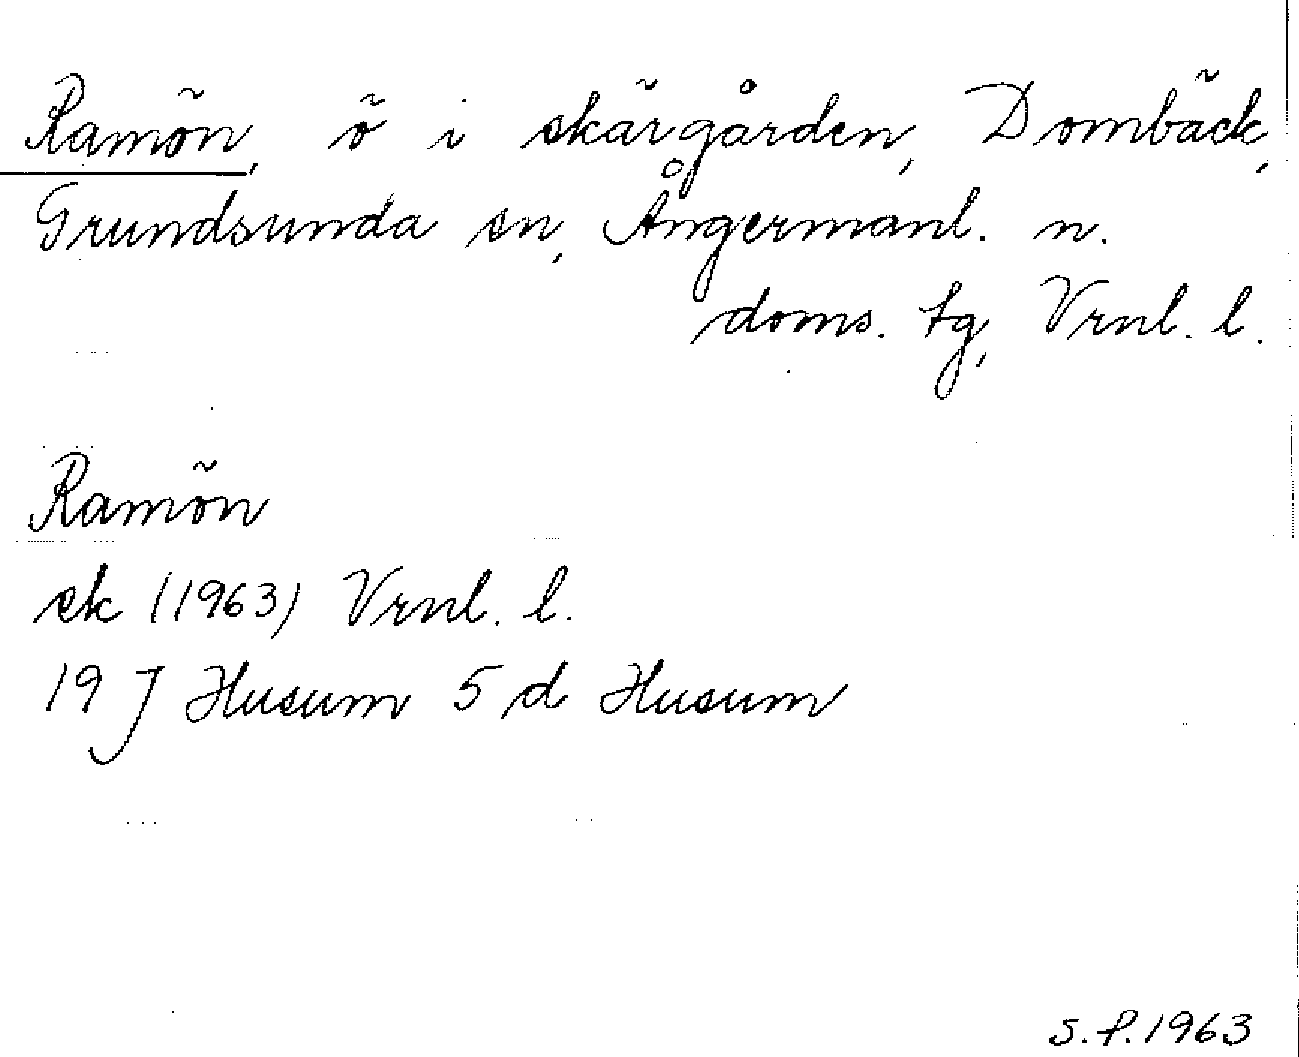 Ramön, ö i skärgården, Dombäck,
Grundsunda sn, Ångermanl. n.
doms. tg, Vrnl. l.
Ramön
ek (1963) Vrnl. l.
19 J Husum 5 d Husum
S.P. 1963